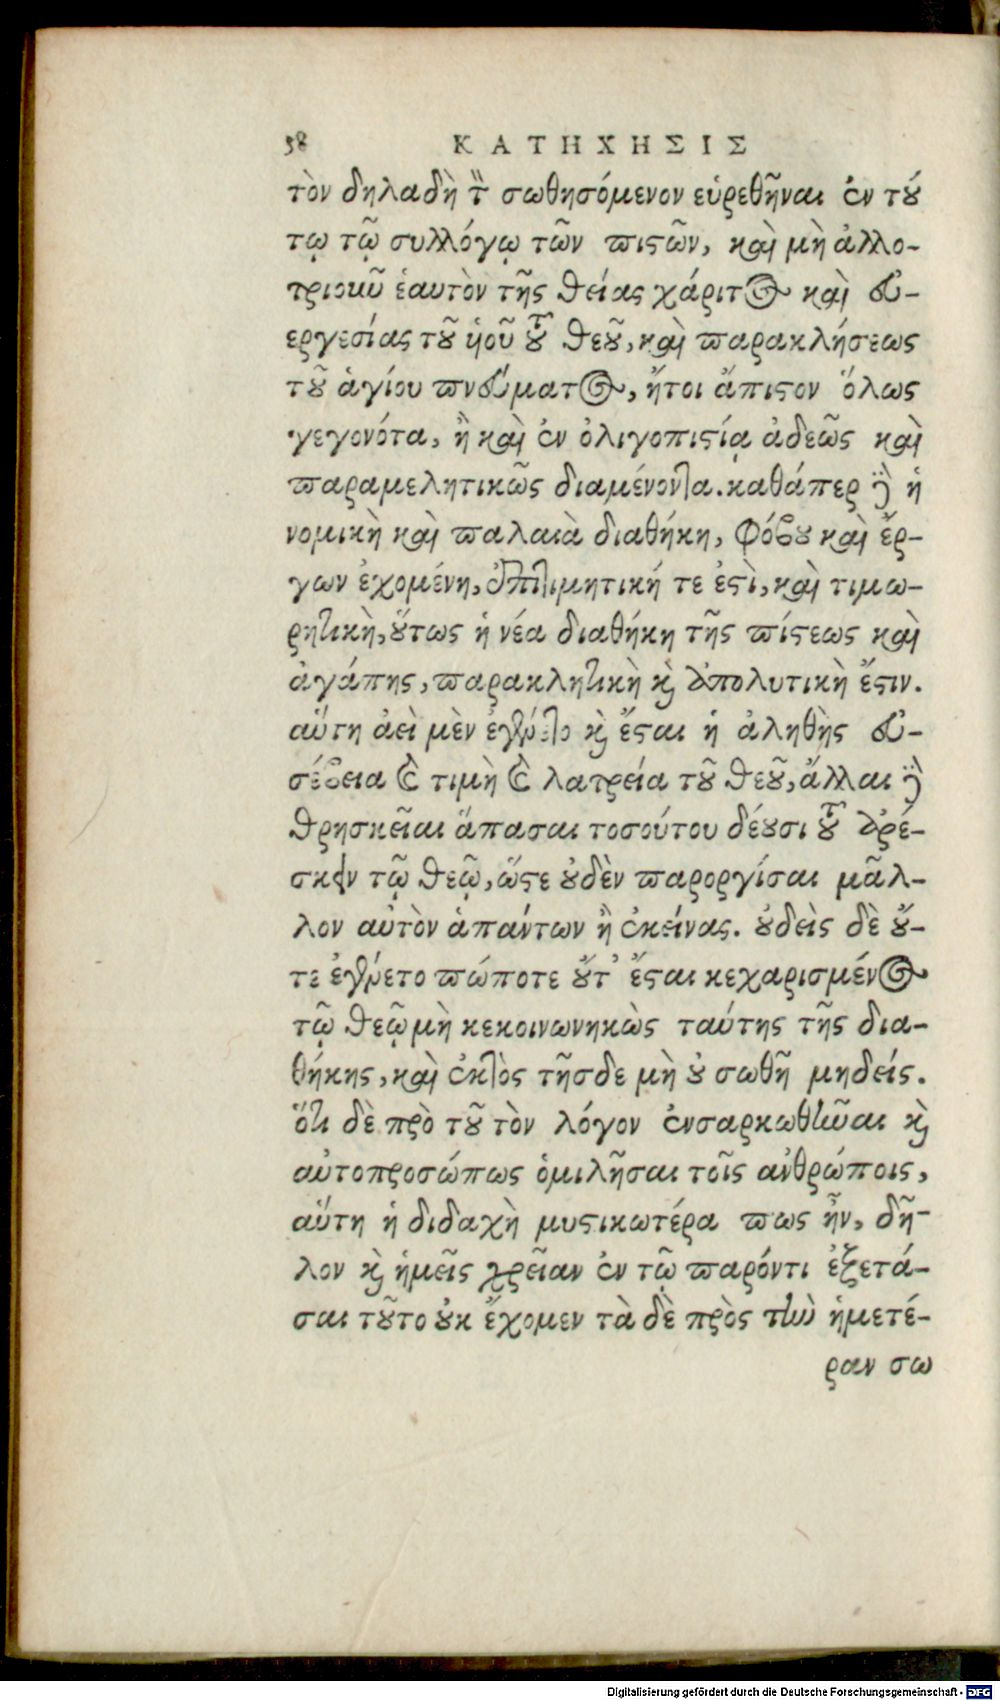 58 ΚΑΤΗΧΗΣΙΣ
τὸν δηλαδὴ τὸν σωθησόμενον εὑρεθῆναι ἐν τού
τῳ τῷ συλλόγῳ τῶν πιστῶν, καὶ μὴ ἀλλο-
τριοῦν ἑαυτὸν τῆς θείας χάριτος καὶ εὐ-
εργεσίας τοῦ ὑιοῦ τοῦ θεοῦ, καὶ παρακλήσεως
τοῦ ἁγίου πνεύματος, ἤτοι ἄπιστον ὅλως
γεγονότα, ἢ καὶ ἐν ὀλιγοπιστίᾳ ἀδεῶς καὶ
παραμελητικῶς διαμένοντα. καθάπερ γὰρ ἡ
νομικὴ καὶ παλαιὰ διαθήκη, φόβου καὶ ἔρ-
γων ἐχομένη, ἐπιτιμητική τε ἐστὶ, καὶ τιμω-
ρητικὴ, οὕτως ἡ νέα διαθήκη τῆς πίστεως καὶ
ἀγάπης, παρακλητικὴ καὶ ἀπολυτικὴ ἔστιν.
αὕτη ἀεὶ μὲν ἐγένετο καὶ ἔσται ἡ ἀληθὴς εὐ-
σέβεια καὶ τιμὴ καὶ λατρεία τοῦ θεοῦ, ἄλλαι γὰρ
θρησκεῖαι ἅπασαι τοσούτου δέουσι τοῦ ἀρέ-
σκειν τῷ θεῷ, ὥστε οὐδὲν παροργίσαι μᾶλ-
λον αὐτὸν ἁπάντων ἢ ἐκείνας. οὐδεὶς δὲ οὔ-
τε ἐγένετο πώποτε οὔτ᾽ ἔσται κεχαρισμένος
τῷ θεῷ μὴ κεκοινωνηκὼς ταύτης τῆς δια-
θήκης, καὶ ἐκτὸς τῆσδε μὴ οὐ σωθῆ μηδείς.
ὅτι δὲ πρὸ τοῦ τὸν λόγον ἐνσαρκωθῆναι καὶ
αὐτοπροσώπως ὁμιλῆσαι τοῖς ἀνθρώποις,
αὕτη ἡ διδαχὴ μυστικωτέρα πως ἦν, δῆ-
λον καὶ ἡμεῖς χρεῖαν ἐν τῷ παρόντι ἐξετά-
σαι τοῦτο οὐκ ἔχομεν τὰ δὲ πρὸς τὴν ἡμετέ-
ραν σω
Digitalisierung gefördert durch die Deutsche Forschungsgemeinschaft - DFG